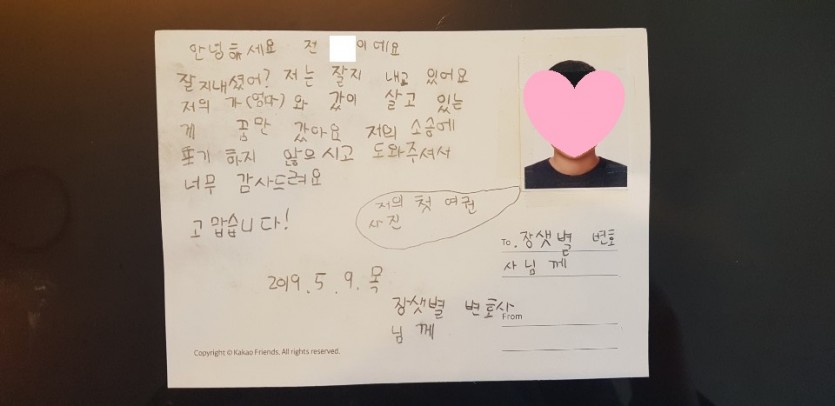 안녕하세요 전 이에요
잘 지내셨어? 저는 잘지 내고 있어요
저의 가(엄마)와 값이 살고 있는
게 꿈만 갔아요 저의 소송에
포기 하지 않으시고 도와주셔서
너무 감사드려요
저의 첫 여권
사진
고맙습니다!
To. 장샛별 변호
사님께
2019.5.9.목
장샛별 변호사
님께
From
Copyright © Kakao Friends. All rights reserved.